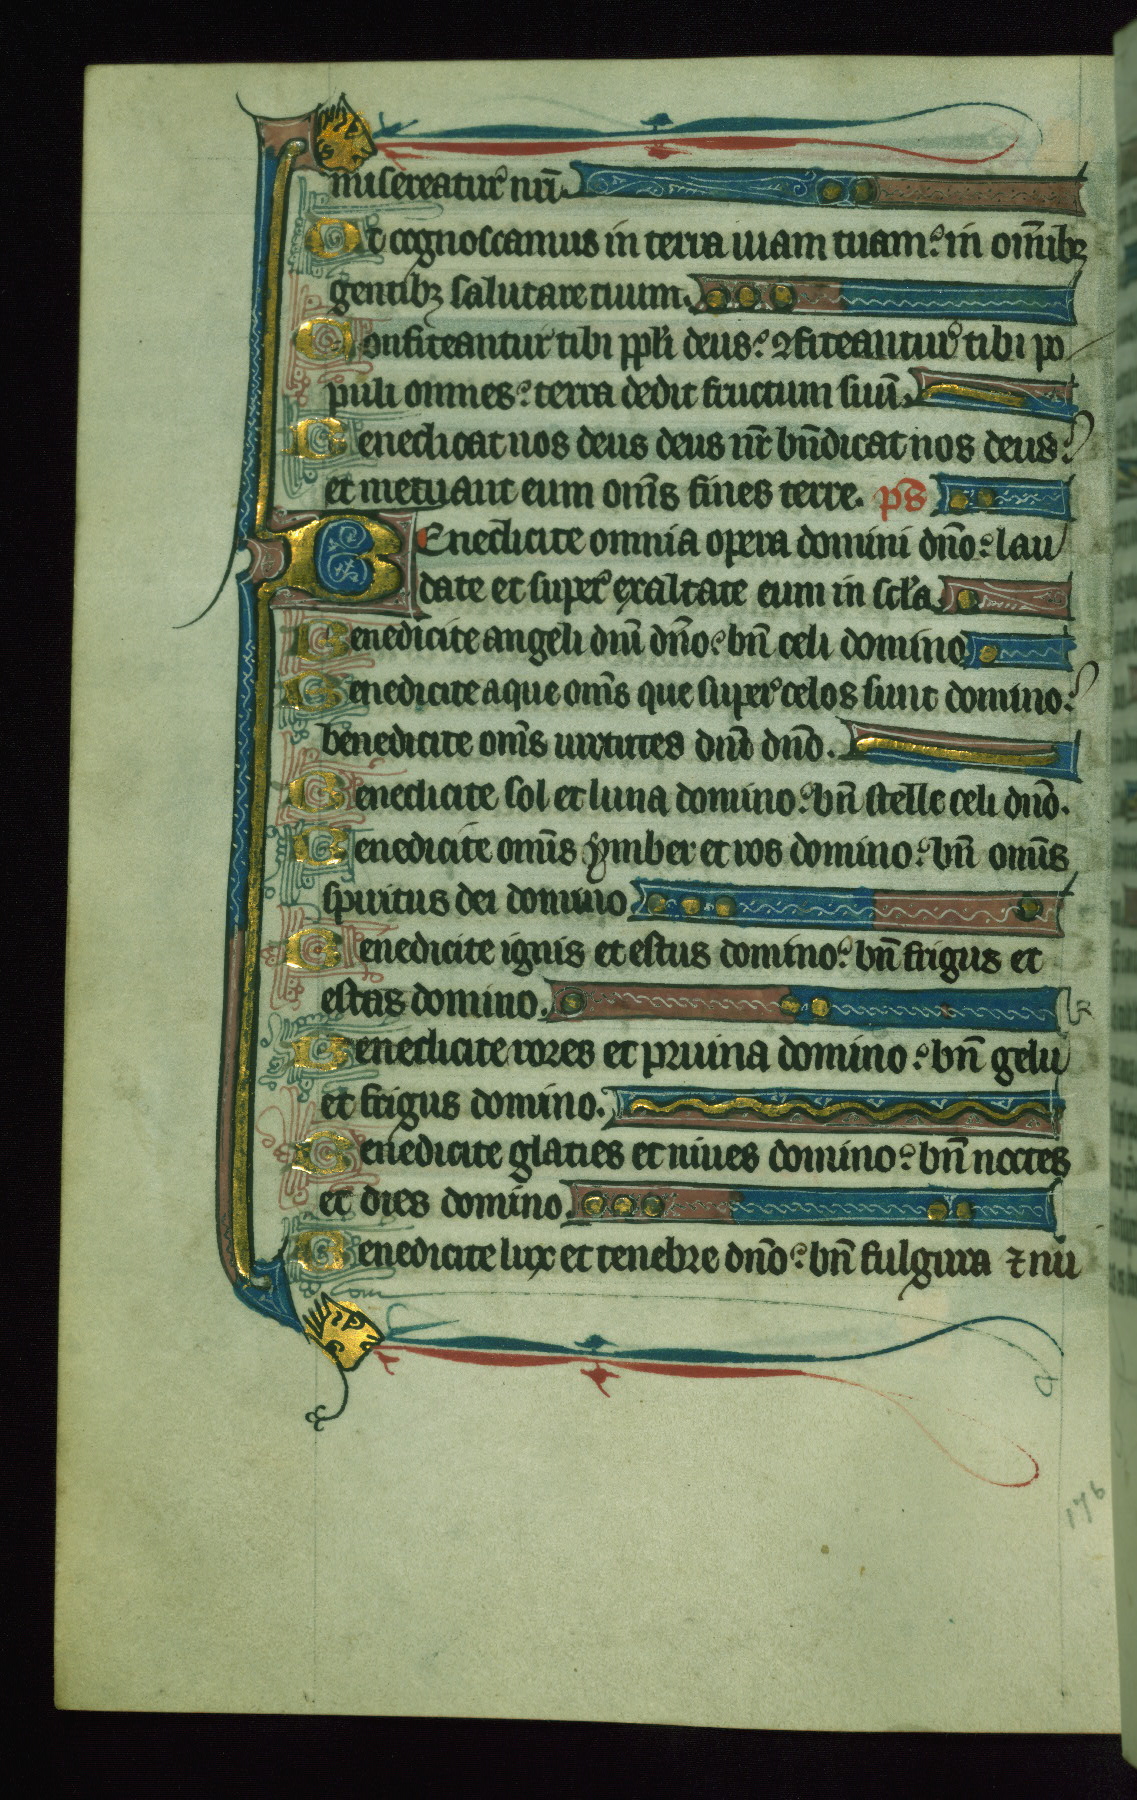 misereatur nr̄i
Ut cognoscamus in terra uiam tuam: in om̄ibꝫ
gentibꝫ salutare tuum.
Confiteantur tibi ppl̄i deus: ꝯfiteantur tibi po
puli omnes: terra dedit fructum suū.
Benedicat nos deus deus nr̄ bn̄dicat nos deus:
et metuant eum om̄s fines terre. ps̄
BEnedicite omnia opera domini dn̄o: lau
date et super exaltate eum in scl̄a
Benedicite angeli dn̄i dn̄o: bn̄ celi domino
Benedicite aque om̄s que super celos sunt domino:
benedicite om̄s uirtutes dn̄i dn̄o.
Benedicite sol et luna domino: bn̄ stelle celi dn̄o.
Benedicite omīs ymber et ros domino: bn̄ omīs
spiritus dei domino
Benedicite ignis et estus domino: bn̄ frigus et
estas domino.
Benedicite rores et pruina domino: bn̄ gelu
et frigus domino.
Benedicite glacies et niues domino: bn̄ noctes
et dies domino.
Benedicite lux et tenebre dn̄o: bn̄ fulgura ⁊ nu
176